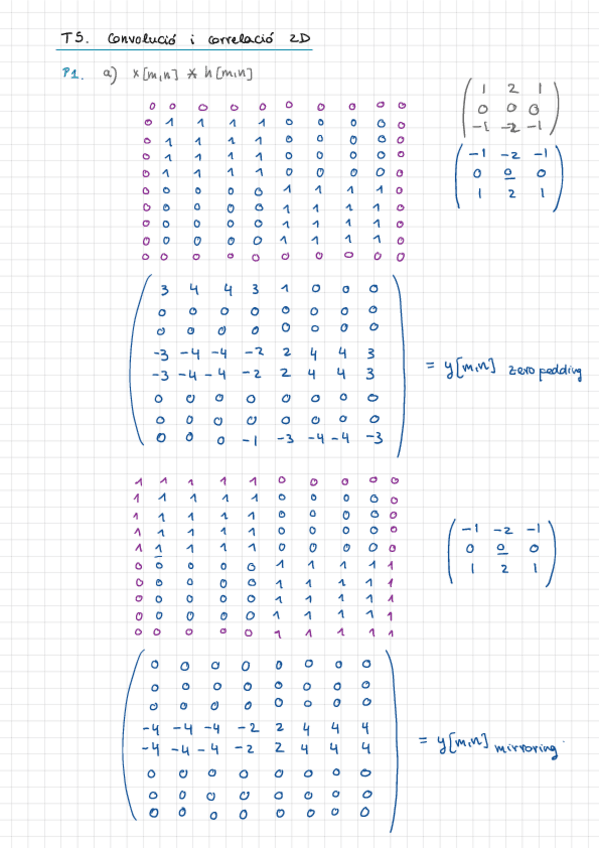 T5. Convolució i correlació 2D
P1. a) x[m,n] * h[m,n]
0 0 0 0 0 0 0 0 0 0
0 1 1 1 1 0 0 0 0 0
0 1 1 1 1 0 0 0 0 0
0 1 1 1 1 0 0 0 0 0
0 1 1 1 1 0 0 0 0 0
0 0 0 0 0 1 1 1 1 0
0 0 0 0 0 1 1 1 1 0
0 0 0 0 0 1 1 1 1 0
0 0 0 0 0 1 1 1 1 0
0 0 0 0 0 0 0 0 0 0
1 2 1
0 0 0
-1 -2 -1
-1 -2 -1
0 0 0
1 2 1
3 4 4 3 1 0 0 0
0 0 0 0 0 0 0 0
0 0 0 0 0 0 0 0
-3 -4 -4 -2 2 4 4 3
-3 -4 -4 -2 2 4 4 3
0 0 0 0 0 0 0 0
0 0 0 0 0 0 0 0
0 0 0 -1 -3 -4 -4 -3
= y[m,n] zero padding
1 1 1 1 1 0 0 0 0 0
1 1 1 1 1 0 0 0 0 0
1 1 1 1 1 0 0 0 0 0
1 1 1 1 1 0 0 0 0 0
1 1 1 1 1 0 0 0 0 0
0 0 0 0 0 1 1 1 1 1
0 0 0 0 0 1 1 1 1 1
0 0 0 0 0 1 1 1 1 1
0 0 0 0 0 1 1 1 1 1
0 0 0 0 0 1 1 1 1 1
-1 -2 -1
0 0 0
1 2 1
0 0 0 0 0 0 0 0
0 0 0 0 0 0 0 0
0 0 0 0 0 0 0 0
-4 -4 -4 -2 2 4 4 4
-4 -4 -4 -2 2 4 4 4
0 0 0 0 0 0 0 0
0 0 0 0 0 0 0 0
0 0 0 0 0 0 0 0
= y[m,n] mirroring.